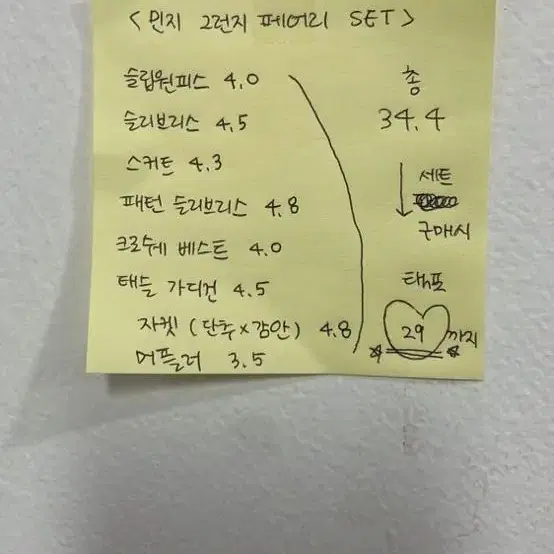 <빈지 그런지 페어리 SET>
슬립원피스 4.0
슬리브리스 4.5
스커트 4.3
패턴 슬리브리스 4.8
크로쉐 베스트 4.0
태슬 가디건 4.5
자켓 (단추x감안) 4.8
머플러 3.5
총
34.4
세트
구매시
택포
29 까지